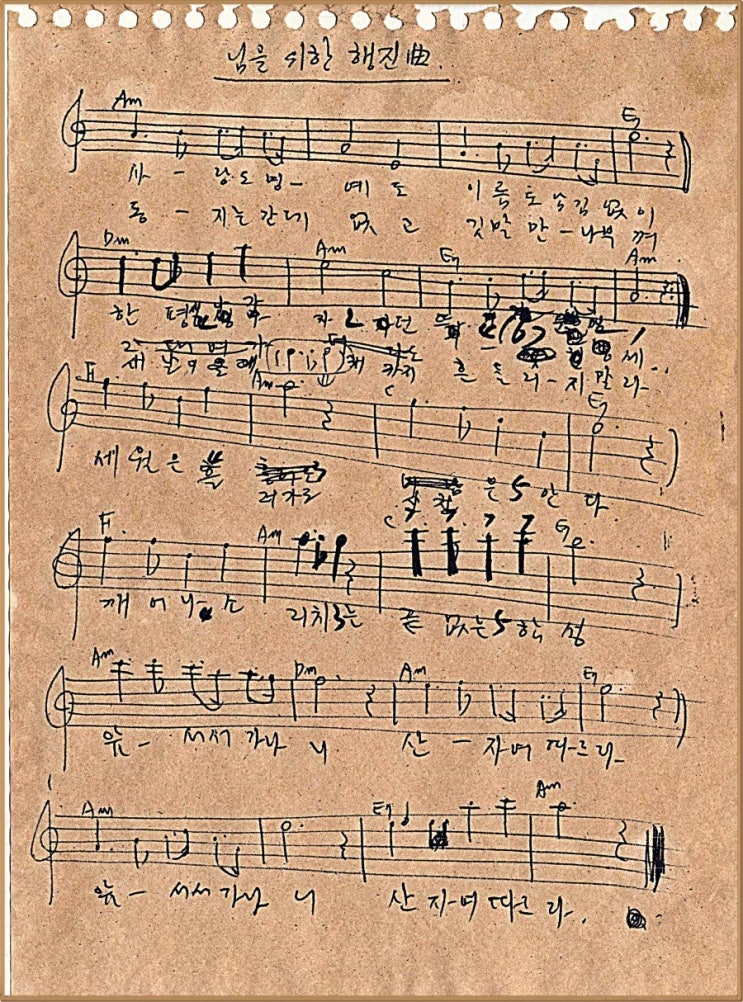 님을 위한 행진曲.
Am E7
사 - 랑도 명 - 예도 이름도 남김 없이
동 - 지는 간데 없고 깃발만 - 나부껴
Dm Am E7 Am
한 평생 나가자던 뜨
새 날이 올 때 까지 흔들리 - 지말라
F Am C E7
세월은 흘
러가도 산천은 안다
F Am C E7
깨어나소 리치는 끝없는 함성
Am Dm Am E7
앞 - 서서 가나니 산 - 자여 따르라
Am E7 Am
앞 - 서서 가나니 산자여 따르라.